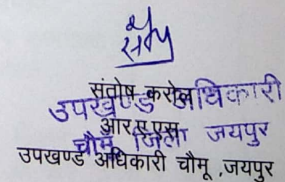 संतोष करोल
उपखण्ड अधिकारी
आर.ए.एस.
चौमू जिला जयपुर
उपखण्ड अधिकारी चौमू ,जयपुर